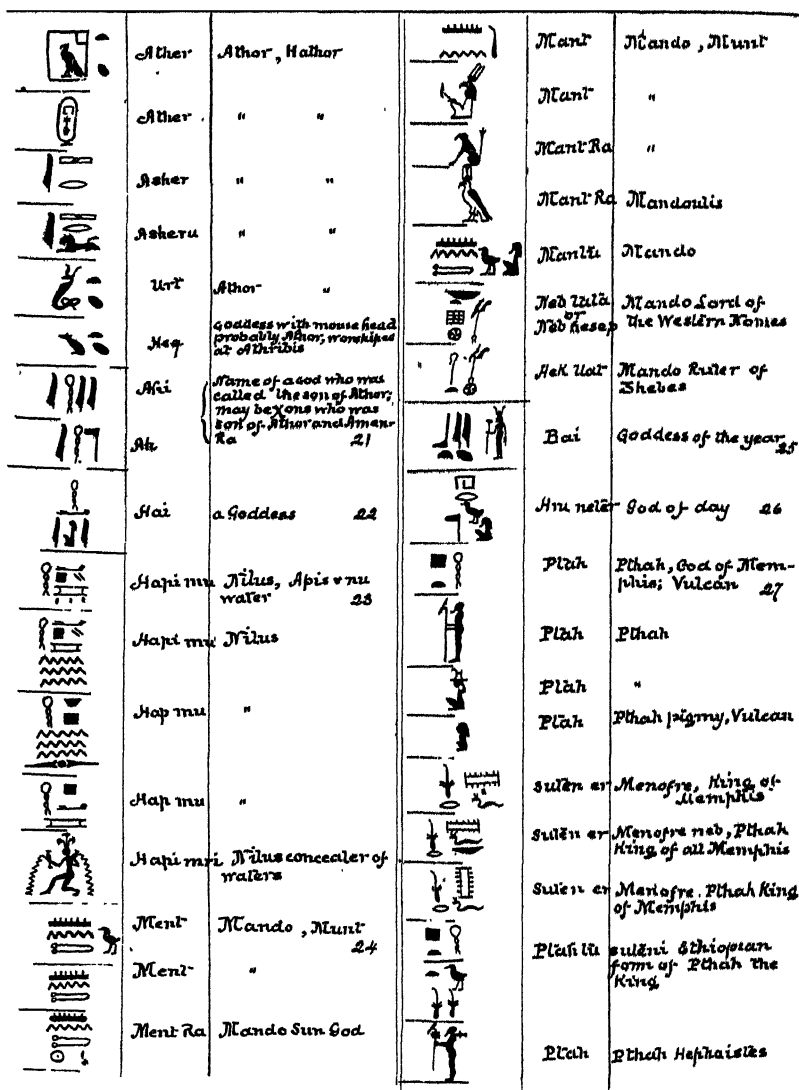 Ather Athor, Hathor
Ather " "
Asher " "
Asheru " "
Urt Athor "
Heq Goddess with mouse head
probably Athor, worshiped
at Athribis
Ahi Name of a God who was
called the son of Athor;
may be Xons who was
son of Athor and Amen-
Ah Ra 21
Hai a Goddess 22
Hapi mu Nilus, Apis v nu
water 23
Hapi mu Nilus
Hap mu "
Hap mu "
Hapi mri Nilus concealer of
waters
Ment Mando, Munt
24
Ment "
Ment Ra Mando Sun God
Mant Mando, Munt
Mant "
Mant Ra "
Mant Ra Mandoulis
Mantu Mando
Neb Mando Lord of
or the Western Nomes
Neb hesep
Hek Uat Mando Ruler of
Thebes
Bai Goddess of the year
25
Hru neter God of day 26
Ptah Pthah, God of Mem-
phis; Vulcan 27
Ptah Pthah
Ptah "
Ptah Pthah pigmy, Vulcan
Suten er Menofre, King of
Memphis
Suten er Menofre neb, Pthah
King of all Memphis
Suten er Menofre. Pthah King
of Memphis
Ptah tu suteni Ethiopian
form of Pthah the
King
Ptah Pthah Hephaistes